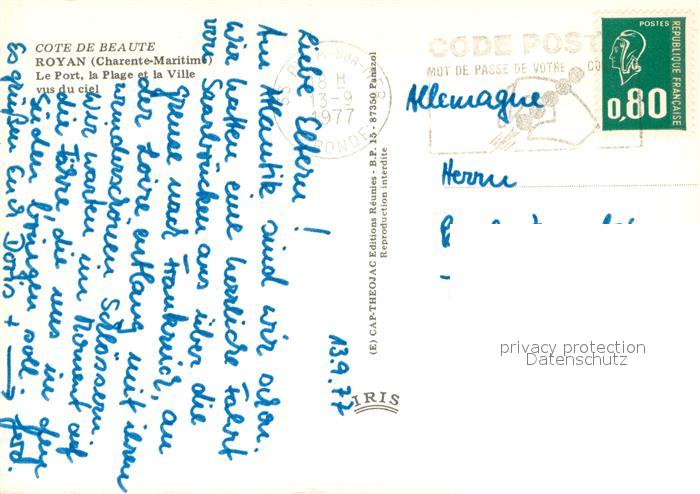 COTE DE BEAUTE
ROYAN (Charente-Maritime)
Le Port, la Plage et la Ville
vus du ciel
13.9.77
Liebe Eltern!
Am Atlantik sind wir schon.
Wir hatten eine herrliche Fahrt
von Saarbrücken aus über die
Grenze nach Frankreich, an
der Loire entlang mit ihren
wunderschönen Schlössern.
Wir warten im Moment auf
die Fähre, die uns in den
Süden bringen soll.
Es grüßen Euch Doris +
(E) CAP-THEOJAC Editions Réunies - B.P. 15 - 87350 Panazol
Reproduction interdite
IRIS
18 H
13-9
1977
GIRONDE
CODE POST
MOT DE PASSE DE VOTRE
POSTES
REPUBLIQUE FRANÇAISE
0,80
Allemagne
Herrn
privacy protection
Datenschutz